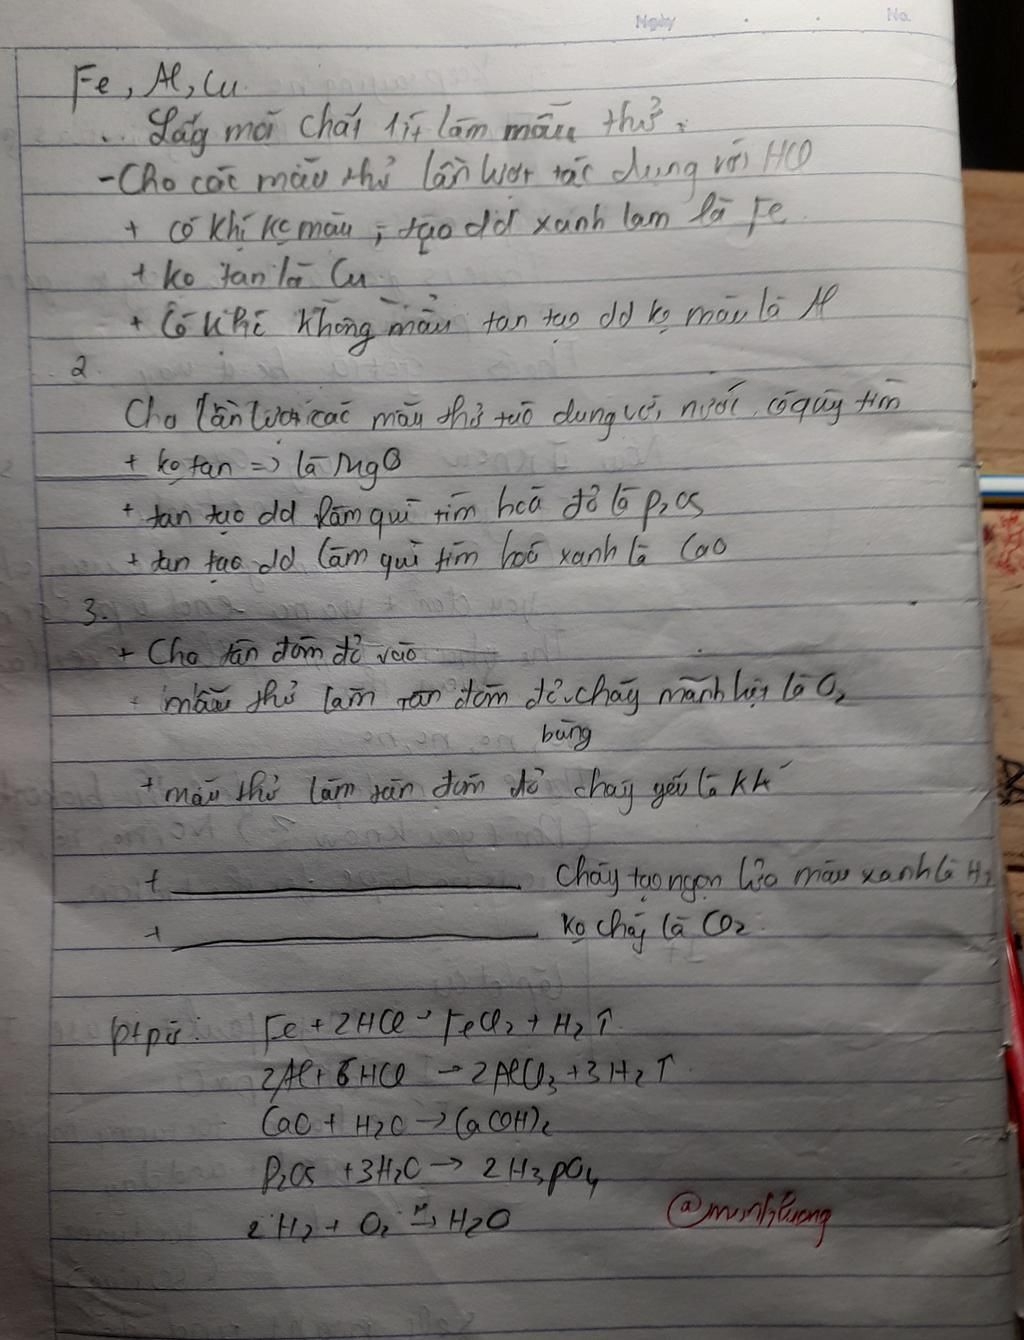 Ngày . . No.
Fe, Al, Cu.
Lấy mỗi chất 1 ít làm mẫu thử:
- Cho các mẫu thử lần lượt tác dụng với HCl
+ có khí kọ màu, tạo dd xanh lam là Fe
+ ko tan là Cu
+ Có khí không màu tan tạo dd kọ màu là Al
2.
Cho lần lượt các mẫu thử tác dụng với nước, có quỳ tím
+ kọ tan => là MgO
+ tan tạo dd làm quì tím hoá đỏ là P2O5
+ tan tạo dd làm quì tím hoá xanh là CaO
3.
+ Cho tàn đóm đỏ vào
+ mẫu thử làm tàn đóm đỏ cháy mãnh liệt là O2
bùng
+ mẫu thử làm tàn đóm đỏ cháy yếu là kk
+ cháy tạo ngọn lửa màu xanh là H2
+ kọ cháy là CO2
ptpứ: Fe + 2HCl → FeCl2 + H2 ↑
2Al + 6HCl → 2AlCl3 + 3H2 ↑
CaO + H2O → Ca(OH)2
P2O5 + 3H2O → 2H3PO4
2H2 + O2 → H2O